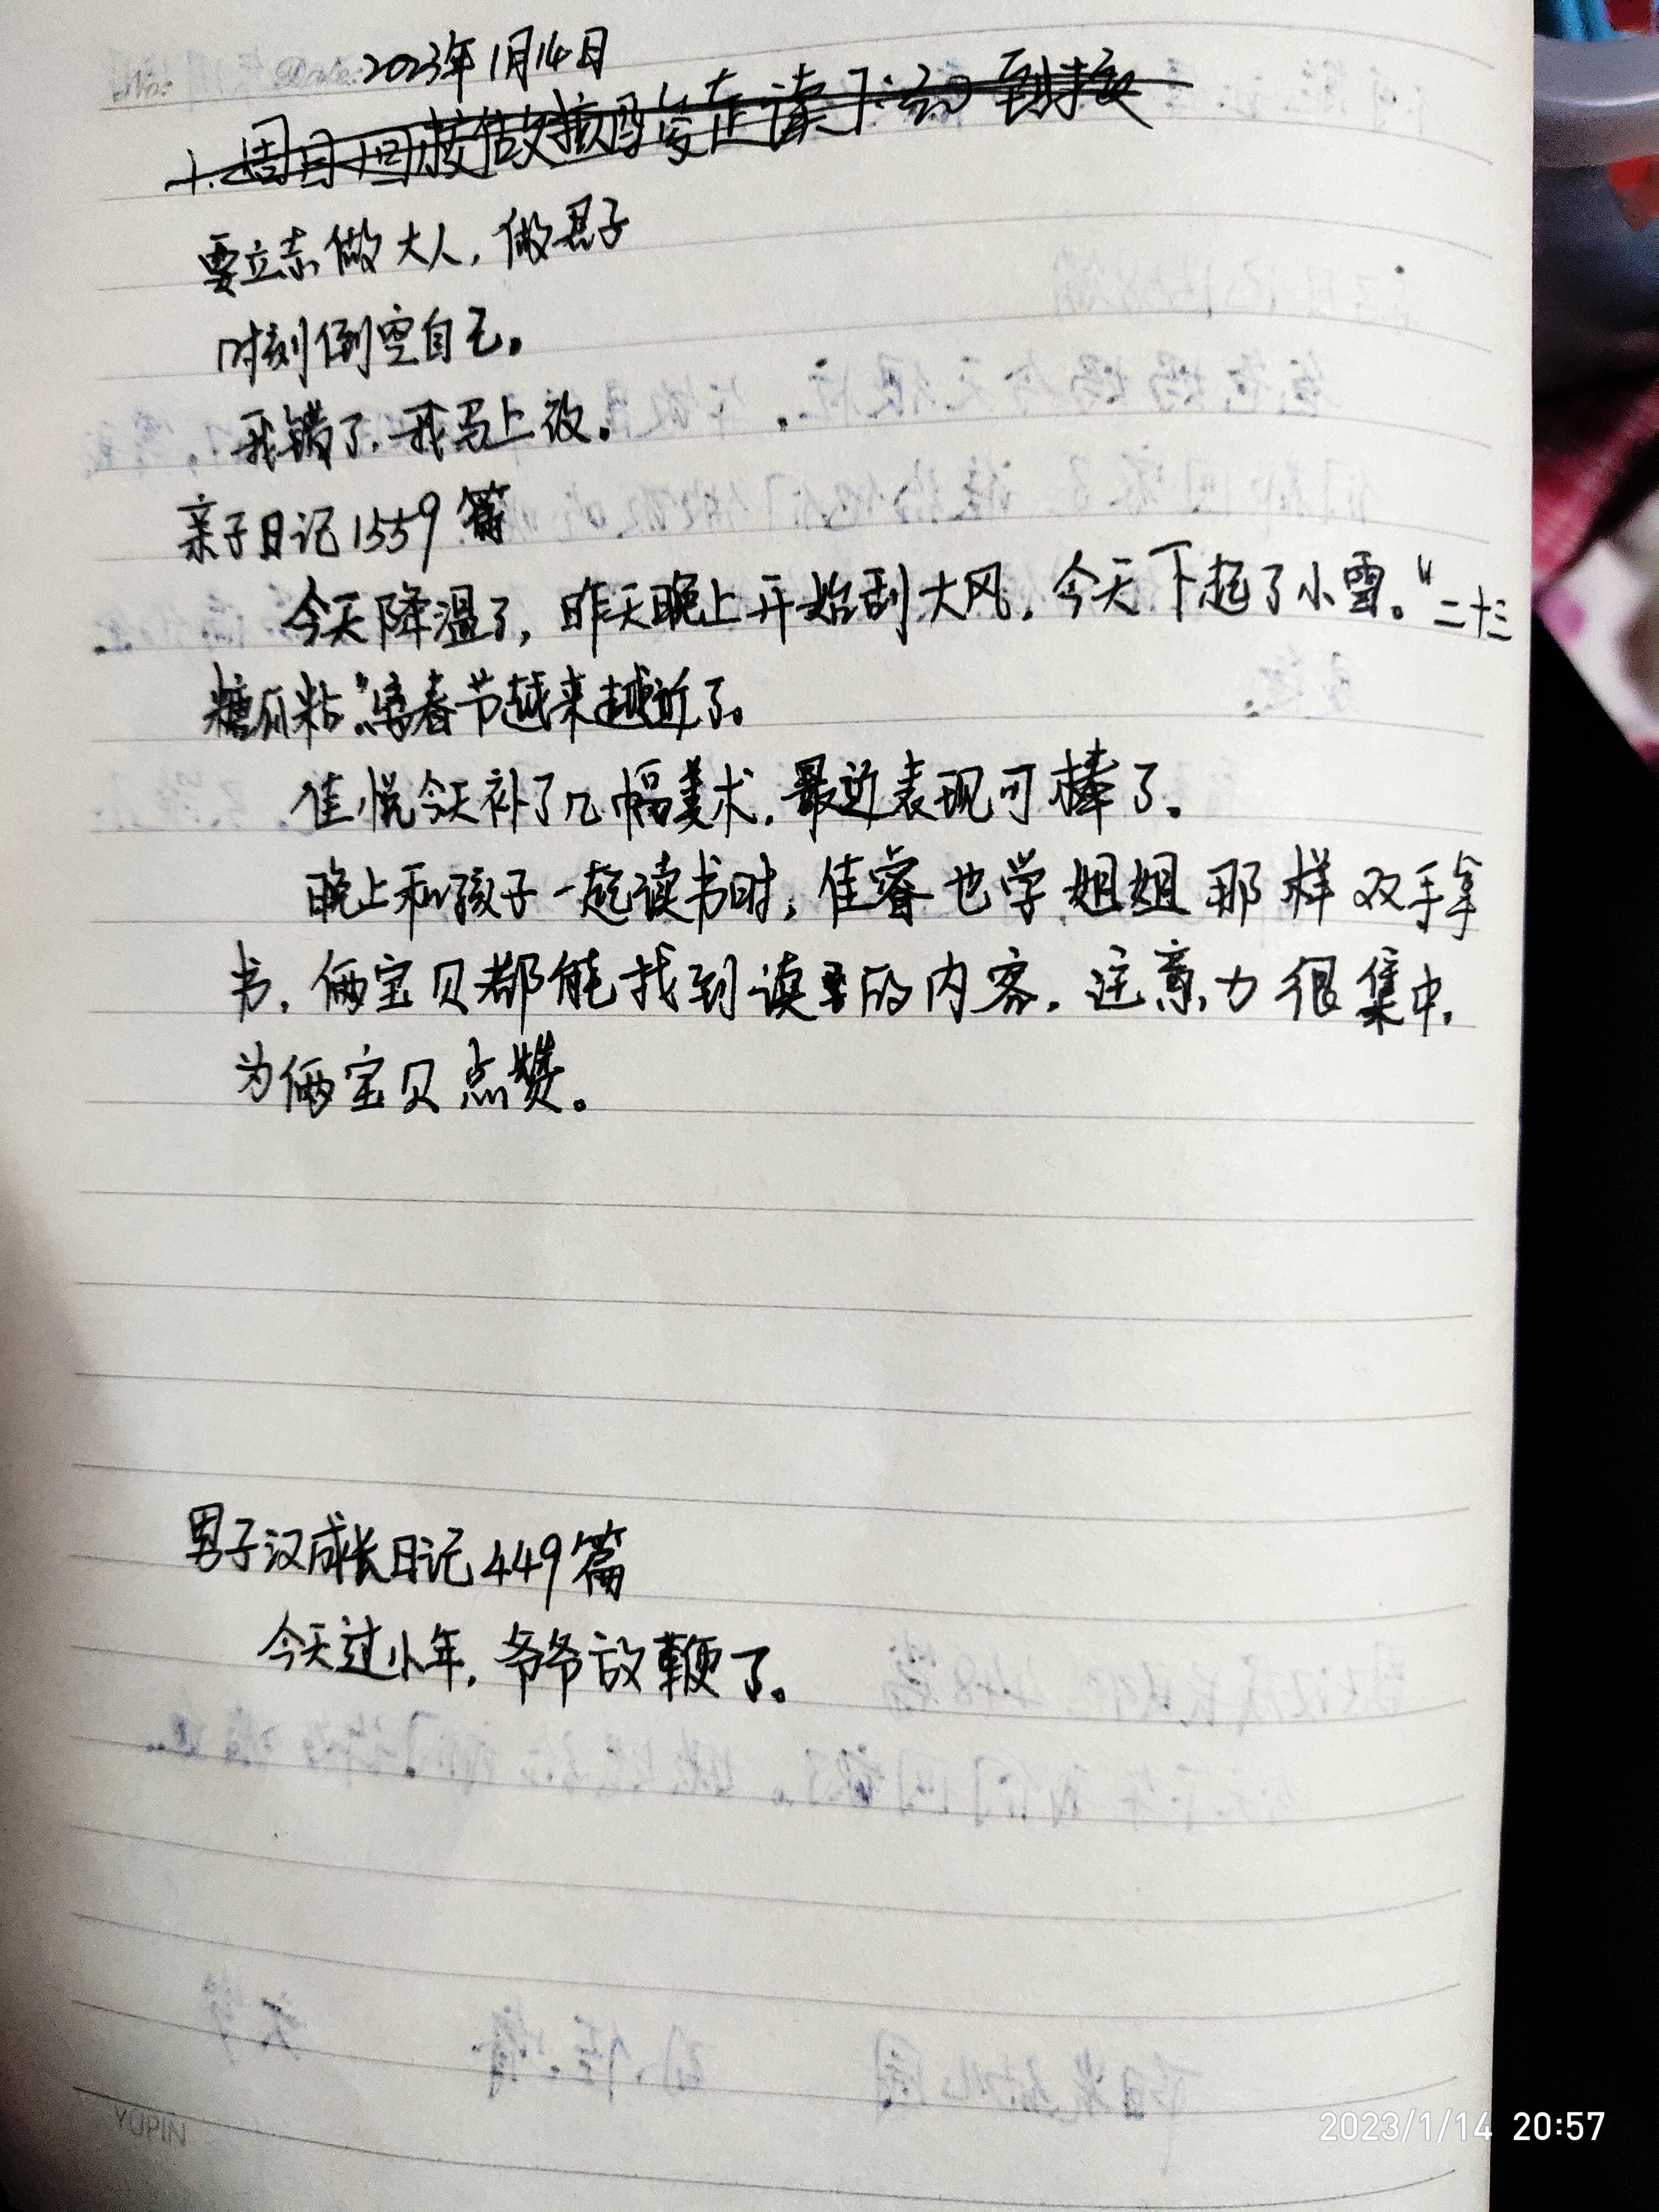 No:
Date: 2023年1月14日
要立志做大人，做君子
时刻倒空自己。
我错了，我马上改。
亲子日记1559篇
今天降温了，昨天晚上开始刮大风，今天下起了小雪。“二十三
糖瓜粘”，离春节越来越近了。
佳悦今天补了几幅美术，最近表现可棒了。
晚上和孩子一起读书时，佳睿也学姐姐那样双手拿
书，俩宝贝都能找到读的内容，注意力很集中，
为俩宝贝点赞。
男子汉成长日记449篇
今天过小年，爷爷放鞭了。
YUPIN
2023/1/14 20:57